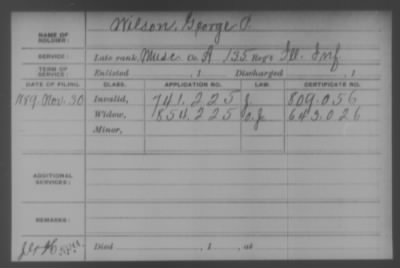 NAME OF SOLDIER: Wilson, George P.
SERVICE: Late rank, Musc Co. A 135 Reg't Ill. Inf
TERM OF SERVICE: Enlisted , 1 Discharged , 1
DATE OF FILING. CLASS. APPLICATION NO. LAW. CERTIFICATE NO.
1889. Nov. 30 Invalid, 741.225 809.056
Widow, 854.225 643.026
Minor,
ADDITIONAL SERVICES:
REMARKS:
Died , 1 , at